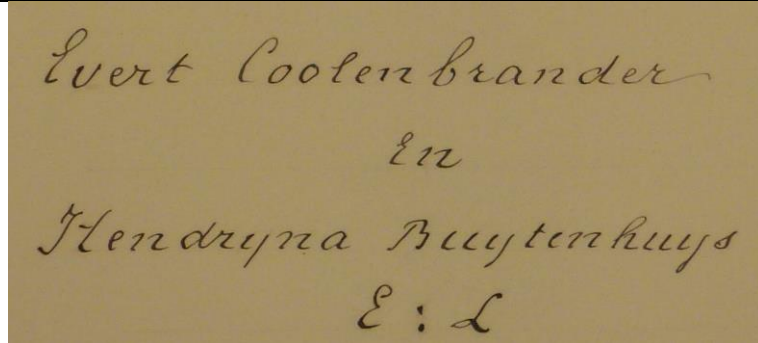 Evert Coolenbrander
En
Hendryna Buytenhuys
E : L